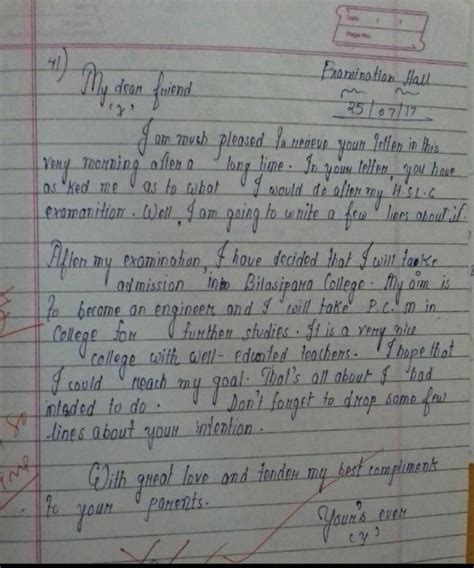 Date / /
Page No.
41)
Examination Hall
My dear friend
'x'
25/07/17
I am much pleased to recieve your letter in this
very morning after a long time. In your letter, you have
as ked me as to what I would do after my H.S.L.C
examanition. Well, I am going to write a few lines about it.
After my examination, I have decided that I will take
admission into Bilasipara College. My aim is
to become an engineer and I will take P.C.M in
College for further studies. It is a very nice
college with well-educated teachers. I hope that
I could reach my goal. That's all about I had
intaded to do. Don't forget to drop some few
lines about your intention.
With great love and tender my best compliments
to your parents.
Your's ever
'y'